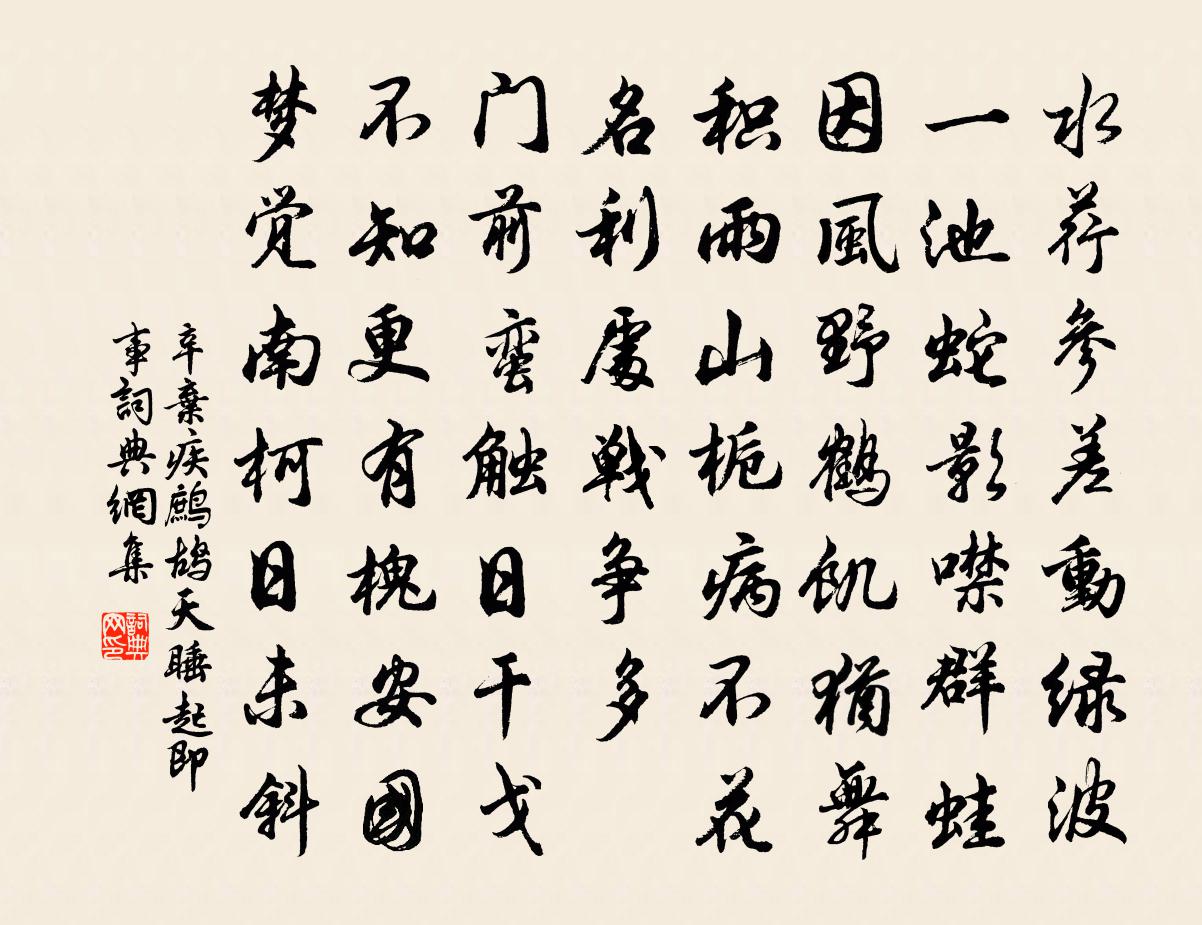 水荇參差動緑波
一池蛇影噤群蛙
因風野鶴飢猶舞
积雨山栀病不花
名利處戦争多
门前蛮触日干戈
不知更有槐安國
梦觉南柯日未斜
辛棄疾鷓鴣天睡起即
事詞典網集
詞典网印